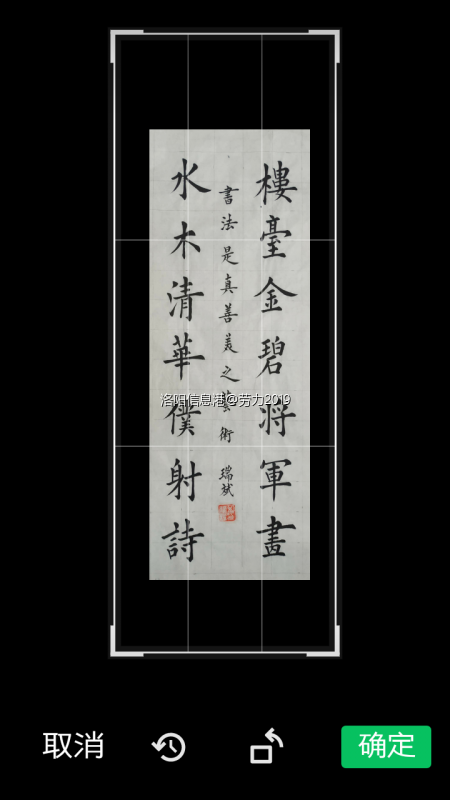 樓臺金碧將軍畫
書法是真善美之藝術 瑞斌
水木清華僕射詩
洛阳信息港@劳力2019
取消
确定